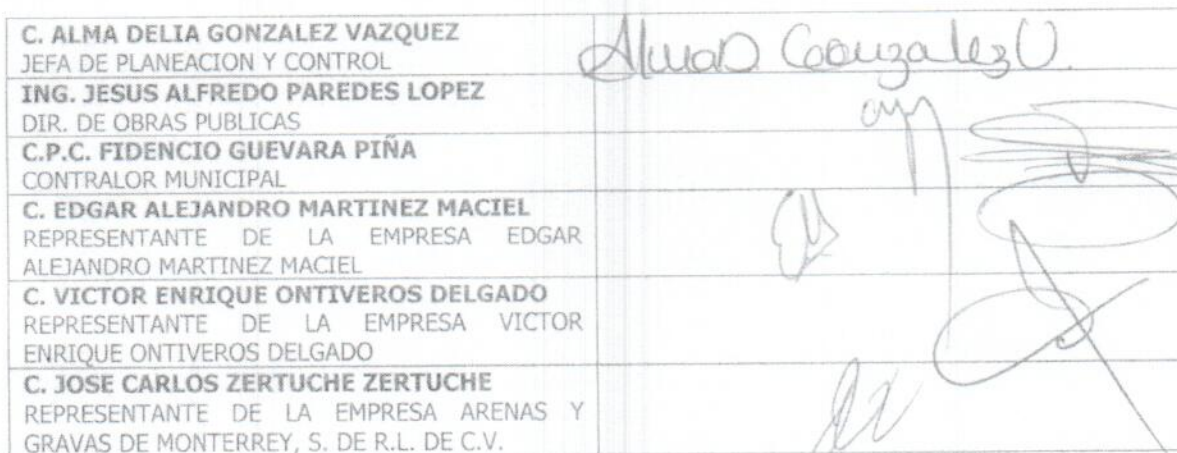 C. ALMA DELIA GONZALEZ VAZQUEZ
JEFA DE PLANEACION Y CONTROL
AlmaD GonzalezV.
ING. JESUS ALFREDO PAREDES LOPEZ
DIR. DE OBRAS PUBLICAS
C.P.C. FIDENCIO GUEVARA PIÑA
CONTRALOR MUNICIPAL
C. EDGAR ALEJANDRO MARTINEZ MACIEL
REPRESENTANTE DE LA EMPRESA EDGAR
ALEJANDRO MARTINEZ MACIEL
C. VICTOR ENRIQUE ONTIVEROS DELGADO
REPRESENTANTE DE LA EMPRESA VICTOR
ENRIQUE ONTIVEROS DELGADO
C. JOSE CARLOS ZERTUCHE ZERTUCHE
REPRESENTANTE DE LA EMPRESA ARENAS Y
GRAVAS DE MONTERREY, S. DE R.L. DE C.V.